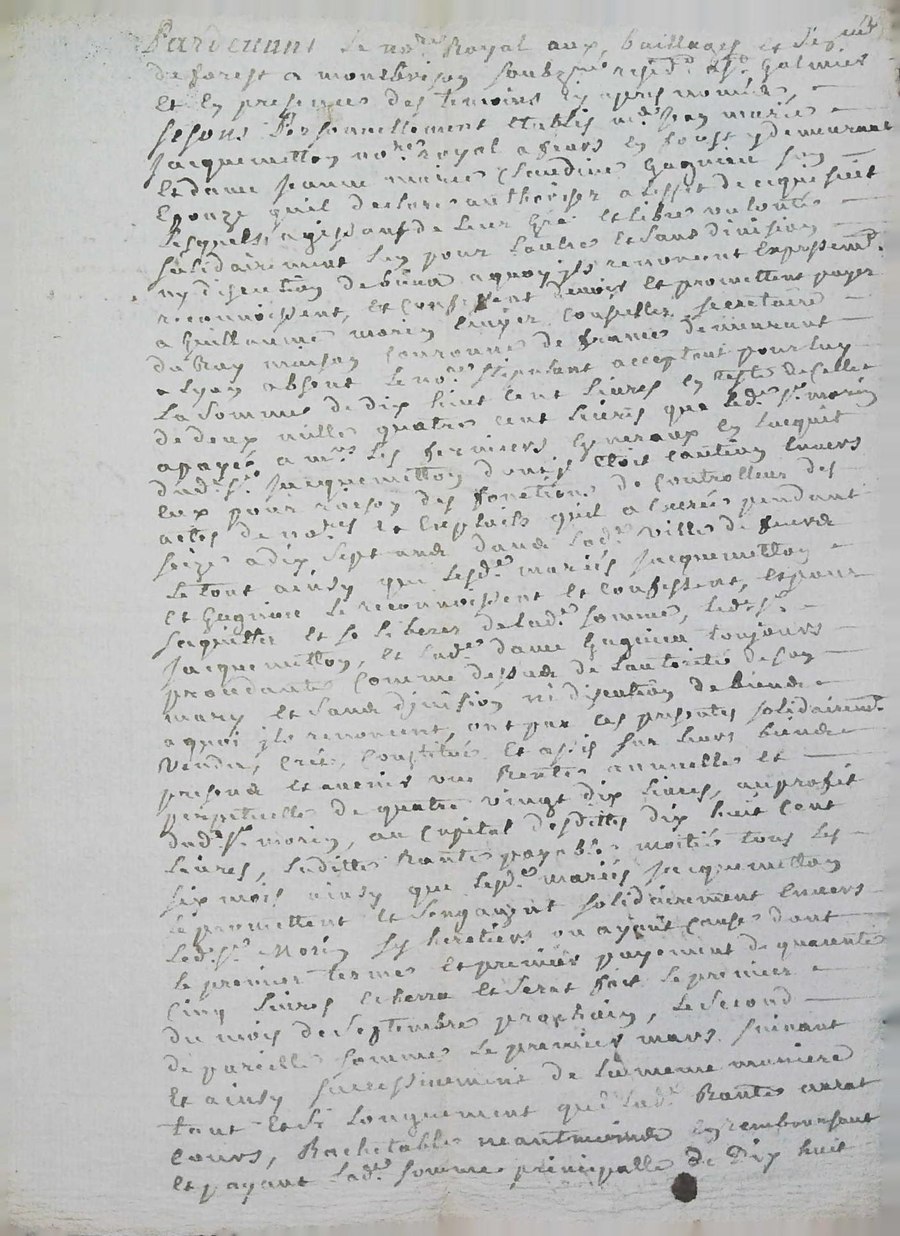 Pardevant Le no.re Royal aux, baillages et
de forest a montbrison soub.né resid.t a S.t Galmier
et En presence des temoins Cy apres nommés,
se sont Personnellement établis m.e Jean marie
Jacquemetton no.re royal a feurs En forest y demeurant
Et dame Jeanne marie Claudine Gagniere son
Epouze quil declare authoriser a leffet de ce qui suit
Lesquels agissant de leur Gré et libre volonté
solidairement Lun pour Lautre Et sans division
ny discution de biens a quoy ils renoncent Expressem.t
reconnoissent, et Confessent devoir et promettent payer
a Guillaume morin Ecuyer Conseiller Secretaire
du Roy maison Couronne de france demeurant
a Lyon absent Le no.re stipulant acceptant pour luy
La somme de dix huit Cent Livres En reste de Celle
de deux mille quatre Cent Livres que led. s.r morin
a payé a m.rs Les fermiers Generaux En Lacquit
dud. s.r Jacquemetton dont il Etoit caution Envers
Eux pour raison des fonctions de Controlleur des
actes de no.res et Exploits quil a Exercé pendant
seize a dix sept ans dans lad.e ville de feurs
Le tout ainsy que lesd.s mariés Jacquemetton
et Gagniere Le reconnoissent et Confessent, et pour
sacquitter et se liberer de lad.e somme, led. s.r
Jacquemetton, et lad.e dame Gagniere toujours
procedante Comme dessus de Lautorité de son
mary et sans division ni discution de biens
a quoi ils renoncent, ont par ces presentes solidairem.t
vendu, Créé, Constitué Et assis sur leurs biens
presens et avenir une Rente annuelle et
perpetuelle de quatre vingt dix Livres, au profit
dud. s.r morin, au Capital desdittes dix huit Cent
Livres, Laditte Rante payable moitié tous Les
six mois ainsy que lesd.s mariés Jacquemetton
le promettent Et sengagent solidairement Envers
led. s.r Morin ses heretiers ou ayant Cause dont
Le premier terme Et premier payement de quarente
Cinq Livres Echerra Et serat fait le premier
du mois de septembre prochain, Le second
de pareille somme Le premier mars suivant
Et ainsy successivement de La meme maniere
tant Et si Longuement que lad.e Rante aurat
Cours, Rachetable neantmoins En remboursant
Et payant Lad.e somme principalle de Dix huit